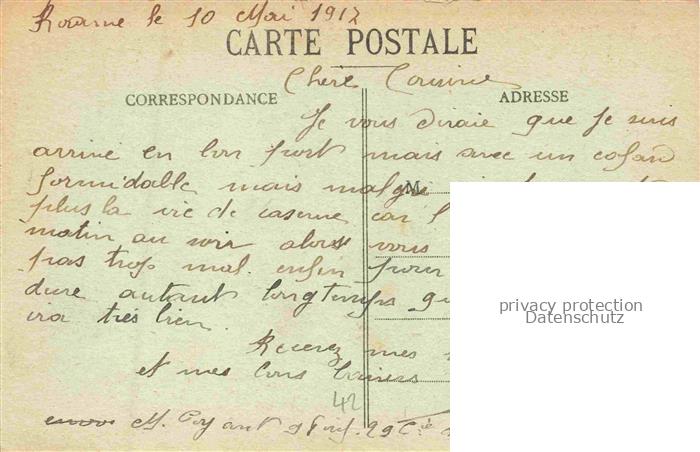 Roanne le 10 Mai 1917
CARTE POSTALE
Chere Cousine
CORRESPONDANCE
ADRESSE
Je vous diraie que je suis
arrivé en bon port mais avec un cafard
formidable mais malgré
M
plus la vie de caserne car
matin au soir alors vous
pas trop mal. enfin pour
dure autant longtemps
ira très bien.
Recevez mes
et mes bons baisers
42
M.
29 Cie
privacy protection
Datenschutz